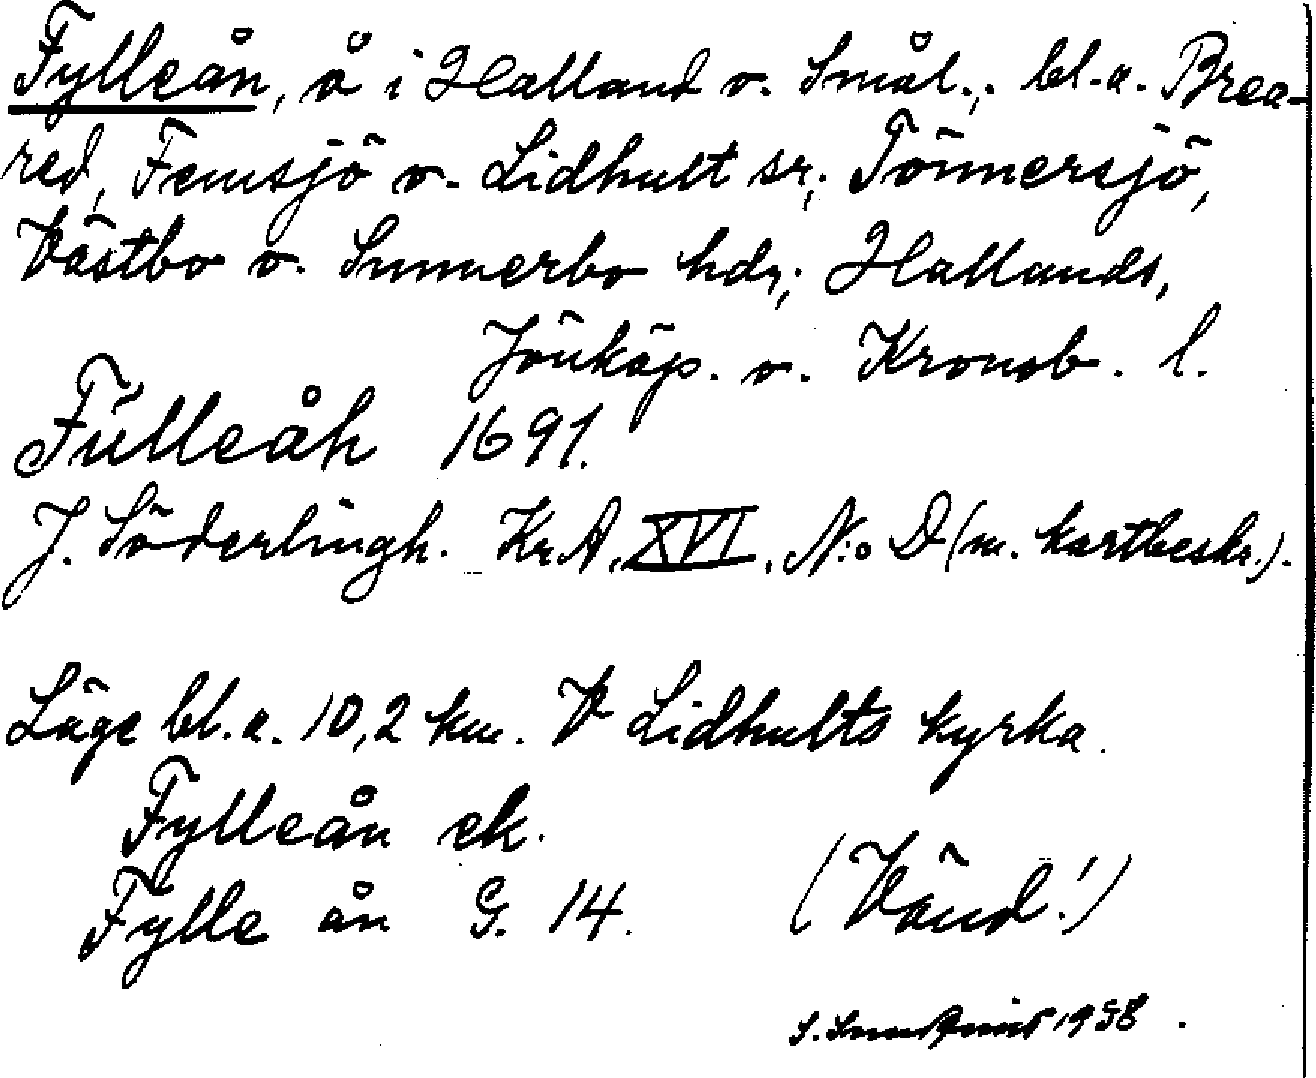 Fylleån, å i Halland o. Smål.; bl.a. Brea-
red, Femsjö o. Lidhult sr; Tönnersjö,
Västbo o. Sunnerbo hdr; Hallands,
Jönköp. o. Kronob. l.
Fülleåh 1691.
J. Söderlingh. Kr.A. XVI, N:o D (m. kartbeskr.).
Läge bl.a. 10,2 km. V Lidhults kyrka.
Fylleån ek.
Fylle ån G. 14. (Vänd!)
S. 1958.